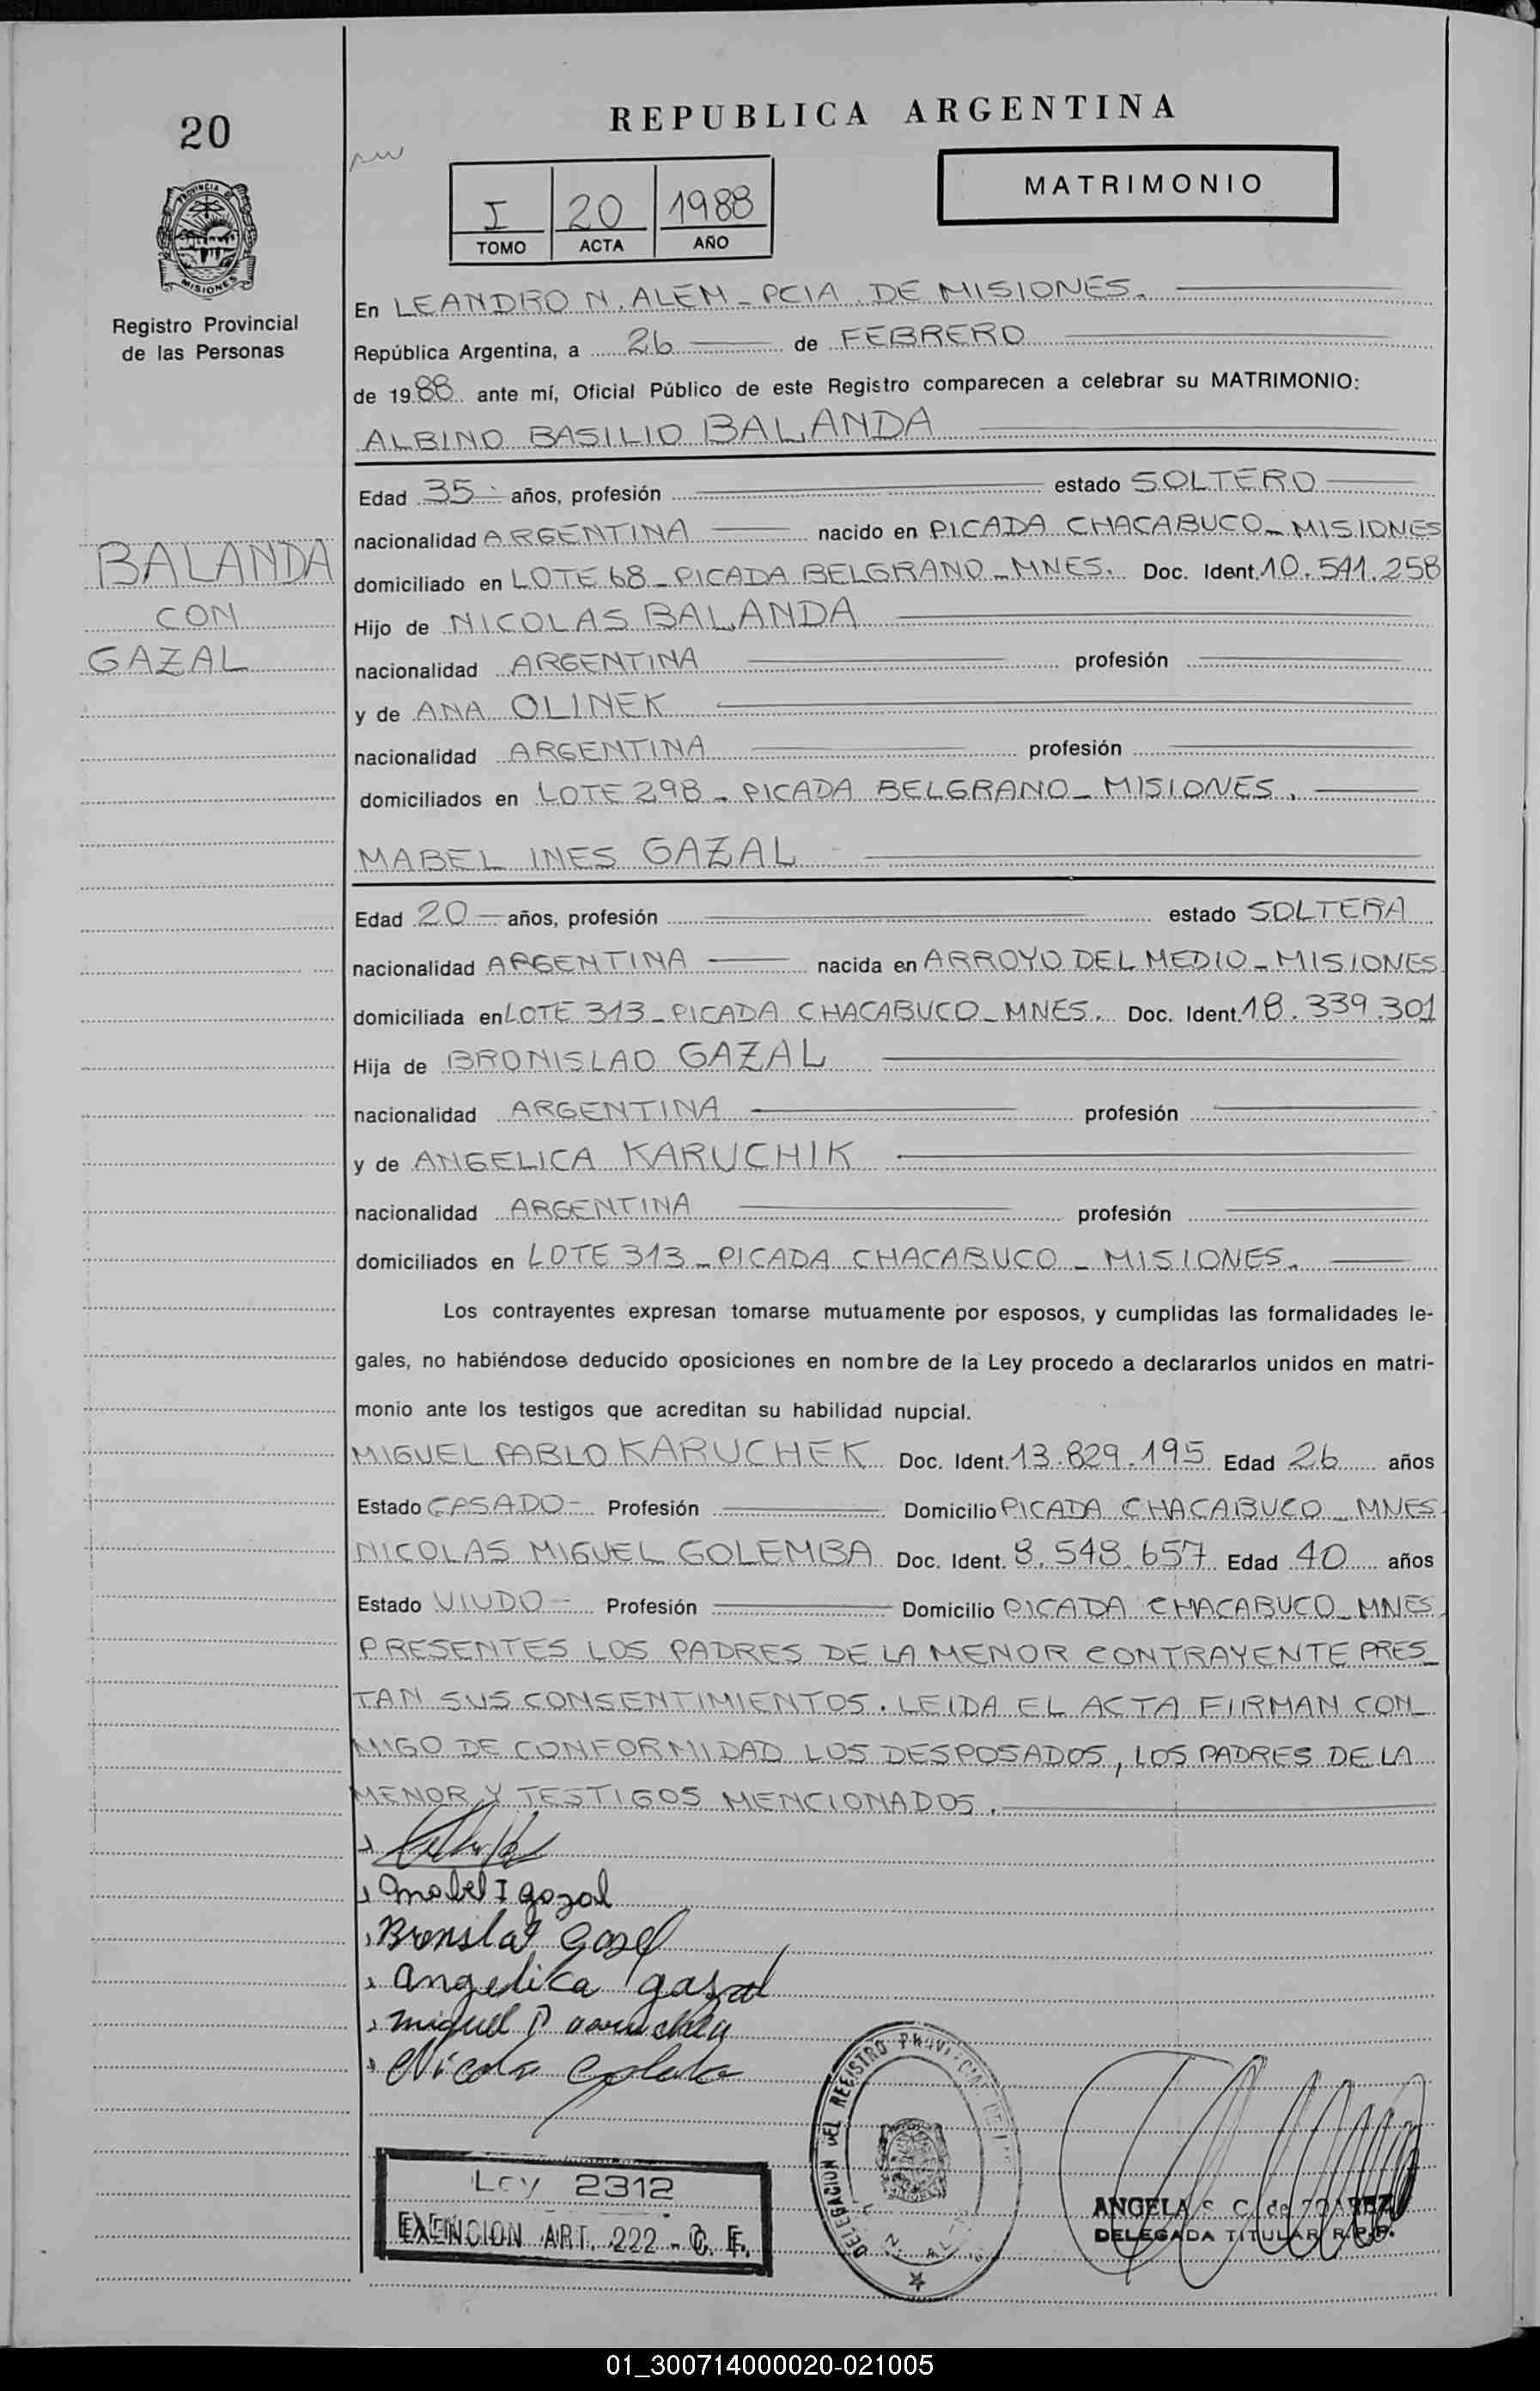 REPUBLICA ARGENTINA
20
MATRIMONIO
I 20 1988
TOMO ACTA AÑO
PROVINCIA DE
MISIONES
Registro Provincial
de las Personas
En LEANDRO N. ALEM - PCIA. DE MISIONES.
República Argentina, a 26 de FEBRERO
de 1988 ante mí, Oficial Público de este Registro comparecen a celebrar su MATRIMONIO:
ALBINO BASILIO BALANDA
Edad 35 años, profesión estado SOLTERO
BALANDA
CON
GAZAL
nacionalidad ARGENTINA nacido en PICADA CHACABUCO - MISIONES
domiciliado en LOTE 68 - PICADA BELGRANO - MNES. Doc. Ident. 10.541.258
Hijo de NICOLAS BALANDA
nacionalidad ARGENTINA profesión
y de ANA OLINEK
nacionalidad ARGENTINA profesión
domiciliados en LOTE 298 - PICADA BELGRANO - MISIONES.
MABEL INES GAZAL
Edad 20 años, profesión estado SOLTERA
nacionalidad ARGENTINA nacida en ARROYO DEL MEDIO - MISIONES
domiciliada en LOTE 313 - PICADA CHACABUCO - MNES. Doc. Ident. 18.339.301
Hija de BRONISLAO GAZAL
nacionalidad ARGENTINA profesión
y de ANGELICA KARUCHIK
nacionalidad ARGENTINA profesión
domiciliados en LOTE 313 - PICADA CHACABUCO - MISIONES.
Los contrayentes expresan tomarse mutuamente por esposos, y cumplidas las formalidades le-
gales, no habiéndose deducido oposiciones en nombre de la Ley procedo a declararlos unidos en matri-
monio ante los testigos que acreditan su habilidad nupcial.
MIGUEL PABLO KARUCHEK Doc. Ident. 13.829.195 Edad 26 años
Estado CASADO - Profesión Domicilio PICADA CHACABUCO - MNES
NICOLAS MIGUEL GOLEMBA Doc. Ident. 8.548.657 Edad 40 años
Estado VIUDO - Profesión Domicilio PICADA CHACABUCO - MNES.
PRESENTES LOS PADRES DE LA MENOR CONTRAYENTE PRES-
TAN SUS CONSENTIMIENTOS. LEIDA EL ACTA FIRMAN CON
MIGO DE CONFORMIDAD LOS DESPOSADOS, LOS PADRES DE LA
MENOR Y TESTIGOS MENCIONADOS.
Mabel I gazal
Angelica gazal
miguel P
DELEGACION DEL REGISTRO PROVINCIAL
Ley 2312
EXENCION ART. 222 - C. F.
ANGELA S. C. de
DELEGADA TITULAR R.P.P.
01_300714000020-021005